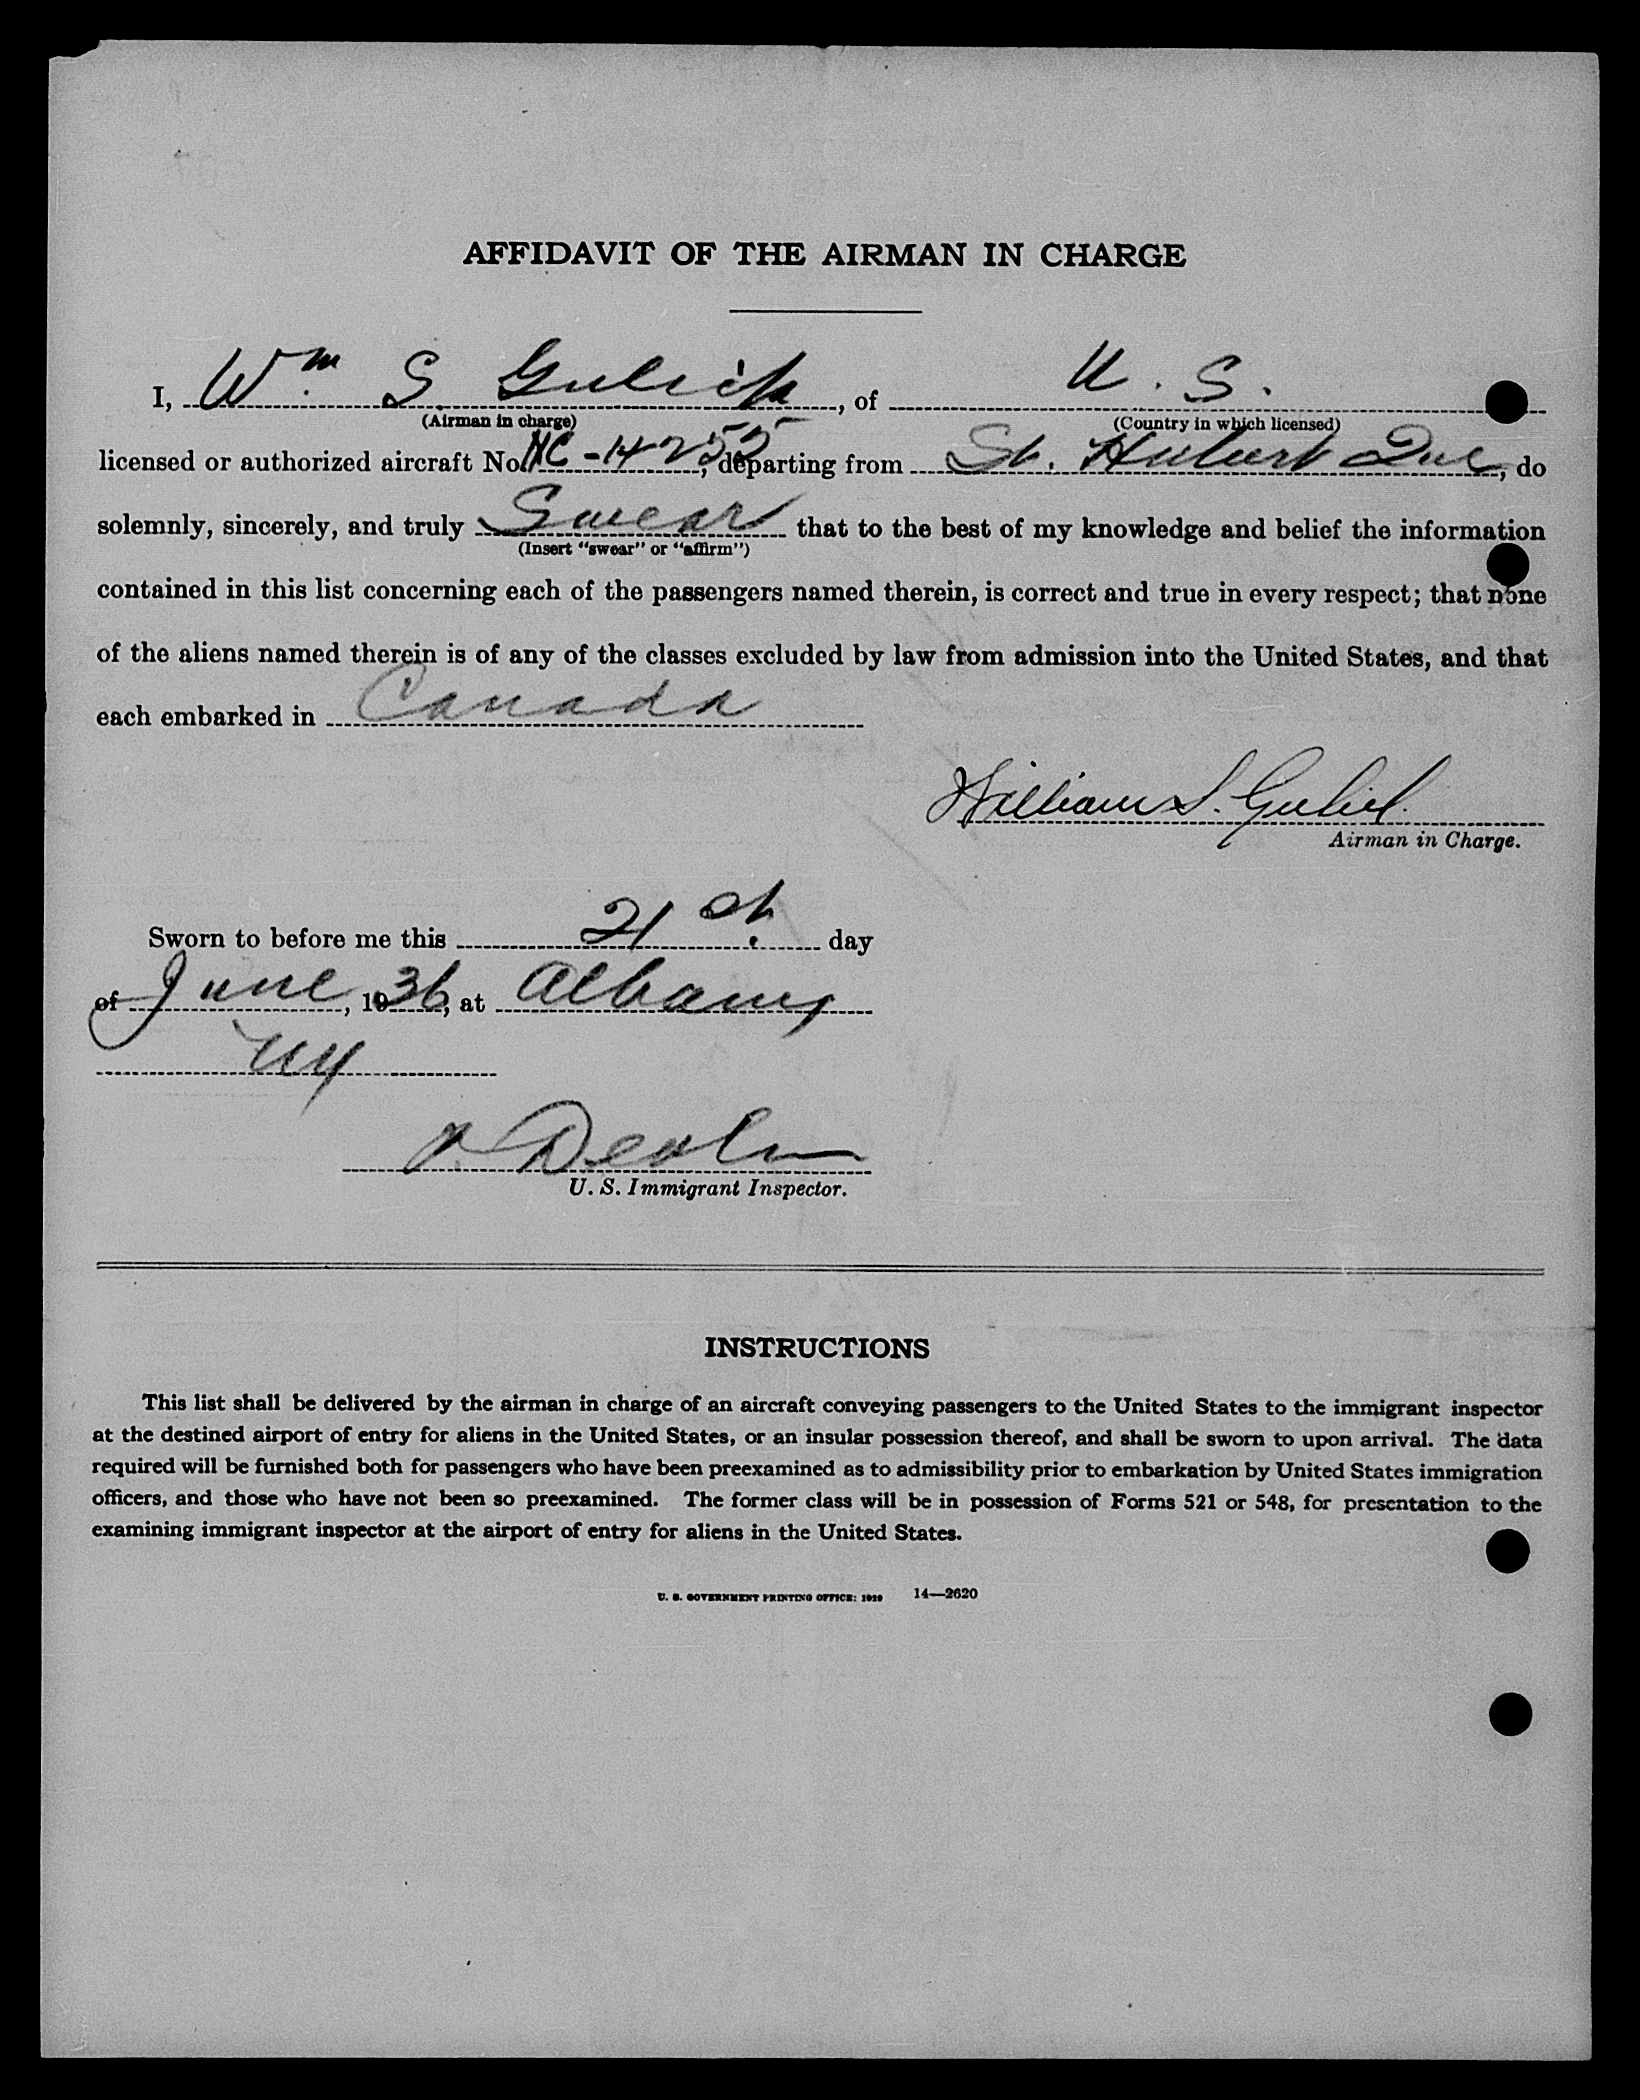 AFFIDAVIT OF THE AIRMAN IN CHARGE
I, Wm. S. Gulick, of U. S.
(Airman in charge) (Country in which licensed)
licensed or authorized aircraft No. NC-14255, departing from St. Hubert Que, do
solemnly, sincerely, and truly Swear that to the best of my knowledge and belief the information
(Insert "swear" or "affirm")
contained in this list concerning each of the passengers named therein, is correct and true in every respect; that none
of the aliens named therein is of any of the classes excluded by law from admission into the United States, and that
each embarked in Canada
William S. Gulick.
Airman in Charge.
Sworn to before me this 21st. day
of June, 1936, at Albany
NY
U. S. Immigrant Inspector.
INSTRUCTIONS
This list shall be delivered by the airman in charge of an aircraft conveying passengers to the United States to the immigrant inspector
at the destined airport of entry for aliens in the United States, or an insular possession thereof, and shall be sworn to upon arrival. The data
required will be furnished both for passengers who have been preexamined as to admissibility prior to embarkation by United States immigration
officers, and those who have not been so preexamined. The former class will be in possession of Forms 521 or 548, for presentation to the
examining immigrant inspector at the airport of entry for aliens in the United States.
U. S. GOVERNMENT PRINTING OFFICE: 1929 14—2620